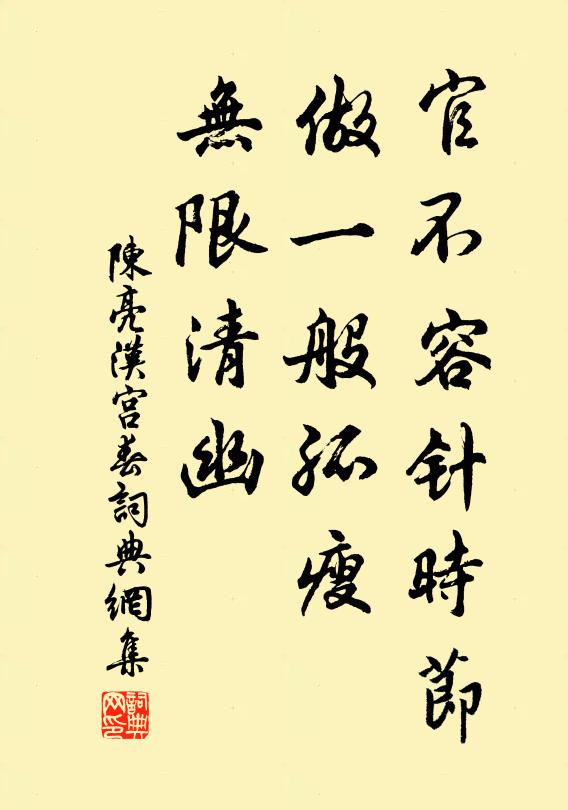 官不容针時節
做一般孤瘦
無限清幽
陳亮漢宮春詞典網集
詞典网印